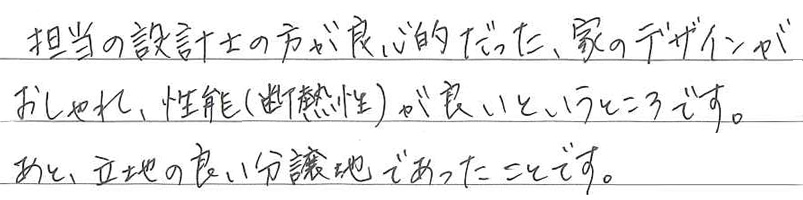 担当の設計士の方が良心的だった、家のデザインが
おしゃれ、性能(断熱性)が良いというところです。
あと、立地の良い分譲地であったことです。